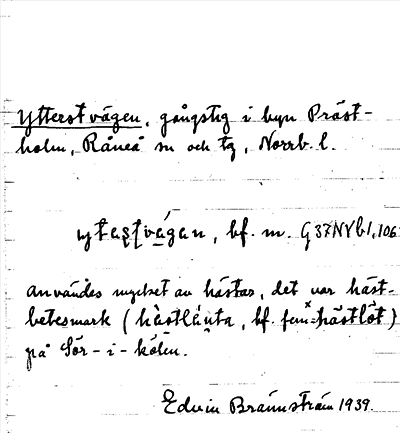 Ytterstvägen, gångstig i byn Präst-
holm, Råneå sn och tg, Norrb. l.
ytəstvägan, bf. m. G37NYb1,106
användes mycket av hästar, det var häst-
betesmark (hästlǻnta, bf. fem. hästlöt)
på Sör-i-kölen.
Edvin Brännström 1939.